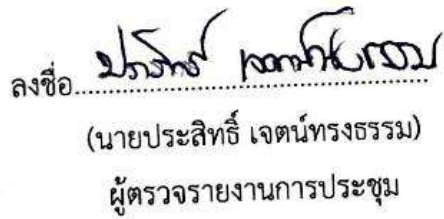 ลงชื่อ ประสิทธิ์ เจตน์ทรงธรรม
(นายประสิทธิ์ เจตน์ทรงธรรม)
ผู้ตรวจรายงานการประชุม